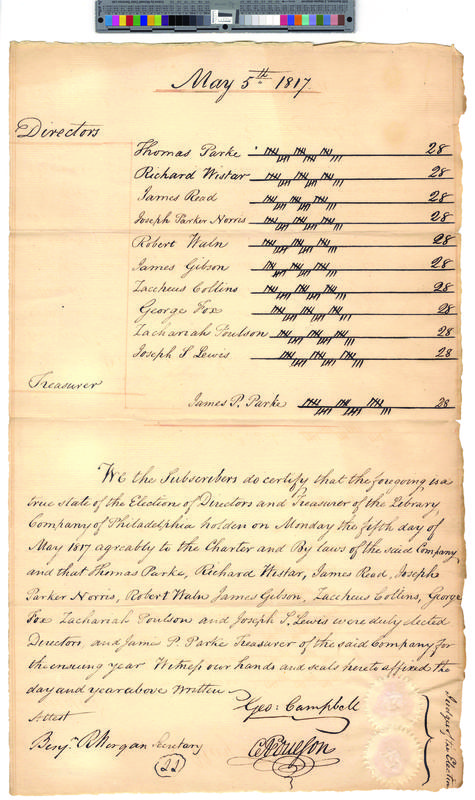 May 5th 1817.
Directors
Thomas Parke 28
Richard Wistar 28
James Read 28
Joseph Parker Norris 28
Robert Waln 28
James Gibson 28
Zaccheus Collins 28
George Fox 28
Zachariah Poulson 28
Joseph S Lewis 28
Treasurer
James P. Parke 28
We the Subscribers do certify that the foregoing is a
true state of the Election of Directors and Treasurer of the Library
Company of Philadelphia holden on Monday the fifth day of
May 1817 agreably to the Charter and By laws of the said Company
and that Thomas Parke, Richard Wistar, James Read, Joseph
Parker Norris, Robert Waln James Gibson, Zaccheus Collins, George
Fox Zachariah Poulson and Joseph S. Lewis were duly elected
Directors and James P. Parke Treasurer of the said Company for
the ensuing year Witness our hands and seals hereto affixed the
day and year above Written
Geo: Campbell
Attest
Benjn R Morgan Secretary
Judges of the Election